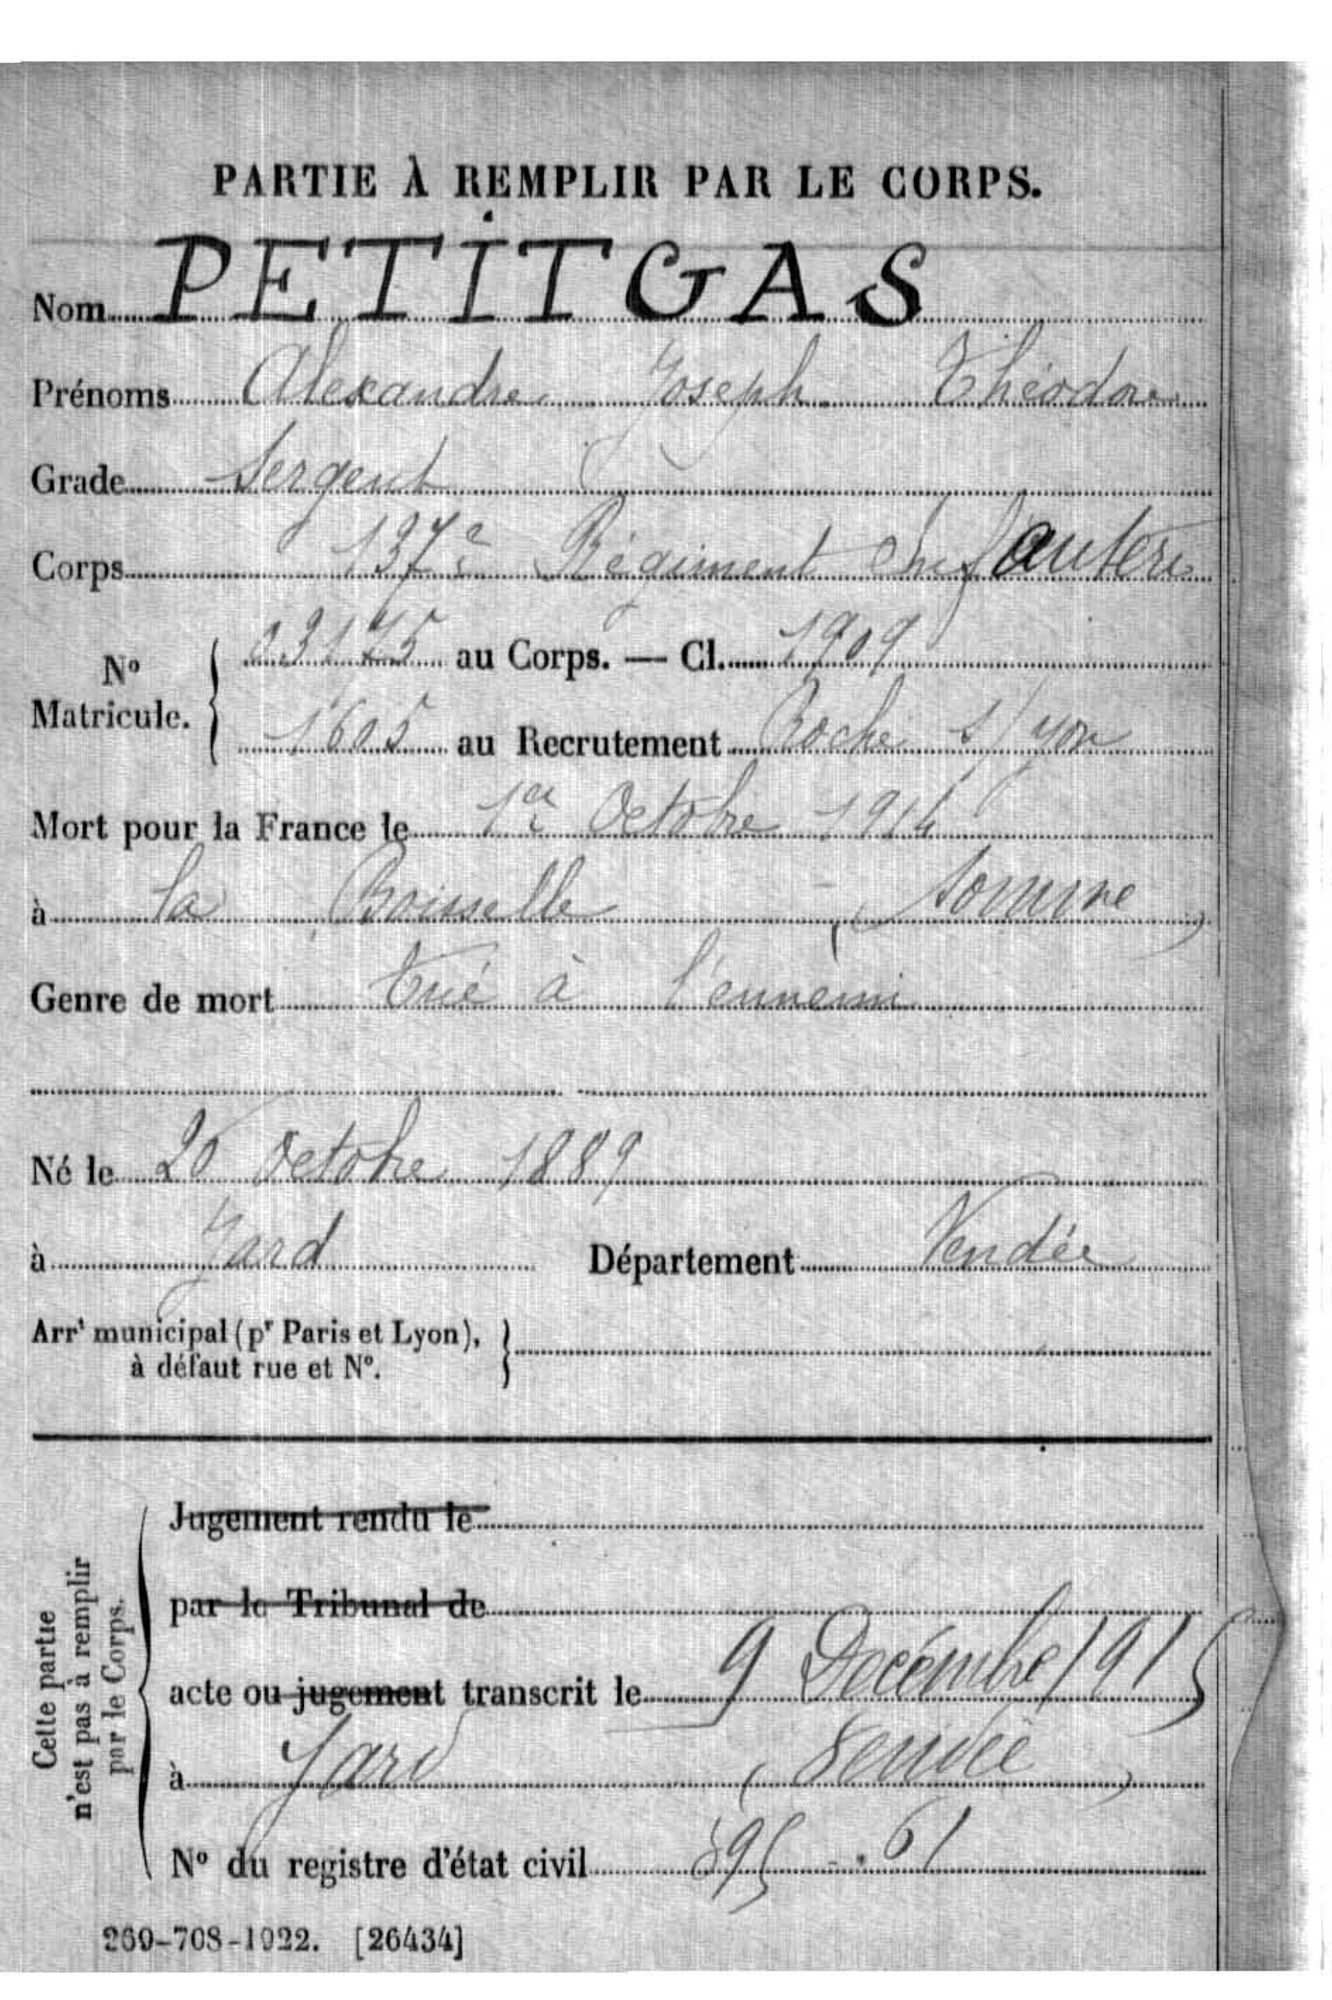 PARTIE À REMPLIR PAR LE CORPS.
Nom PETITGAS
Prénoms Alexandre Joseph Théodore
Grade Sergent
Corps 137e Régiment Infanterie
No Matricule. 03175 au Corps. — Cl. 1909
1605 au Recrutement Roche s/yon
Mort pour la France le 1er Octobre 1914
à la Boisselle (Somme)
Genre de mort Tué à l'ennemi
Né le 20 Octobre 1889
à Jard Département Vendée
Arrt municipal (pr Paris et Lyon),
à défaut rue et No.
Cette partie n'est pas à remplir par le Corps.
Jugement rendu le
par le Tribunal de
acte ou jugement transcrit le 9 Décembre 1915
à Jard (Vendée)
No du registre d'état civil 61
260-708-1922. [26434]